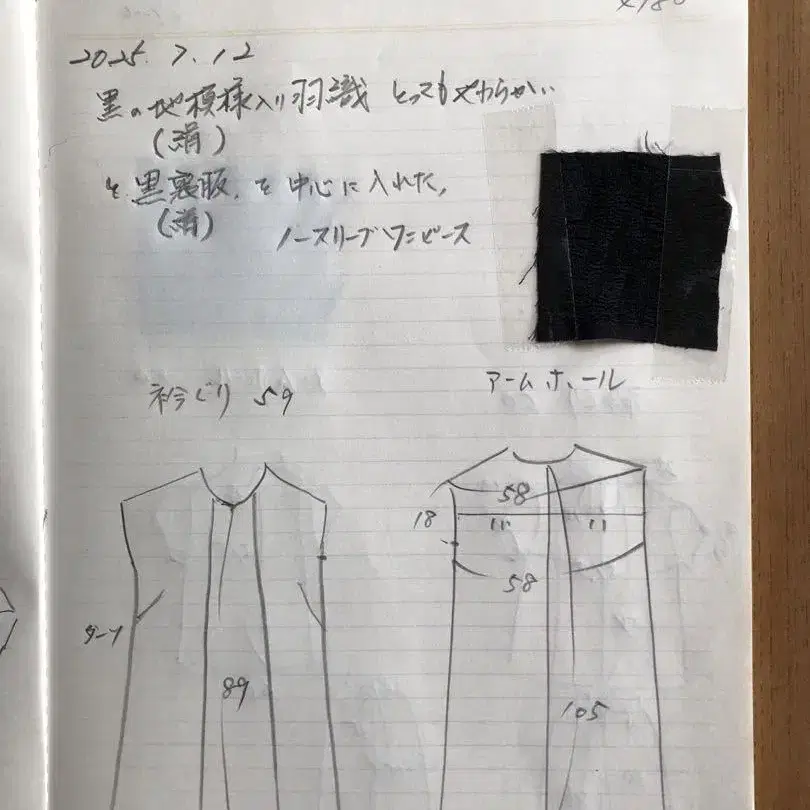 2025.7.12
黒の地模様入り羽織 とってもやわらかい
(絹)
と黒裏服、を中心に入れた。
(絹)
ノースリーブワンピース
衿ぐり 59
アームホール
58
18
11
11
58
ダーツ
89
105